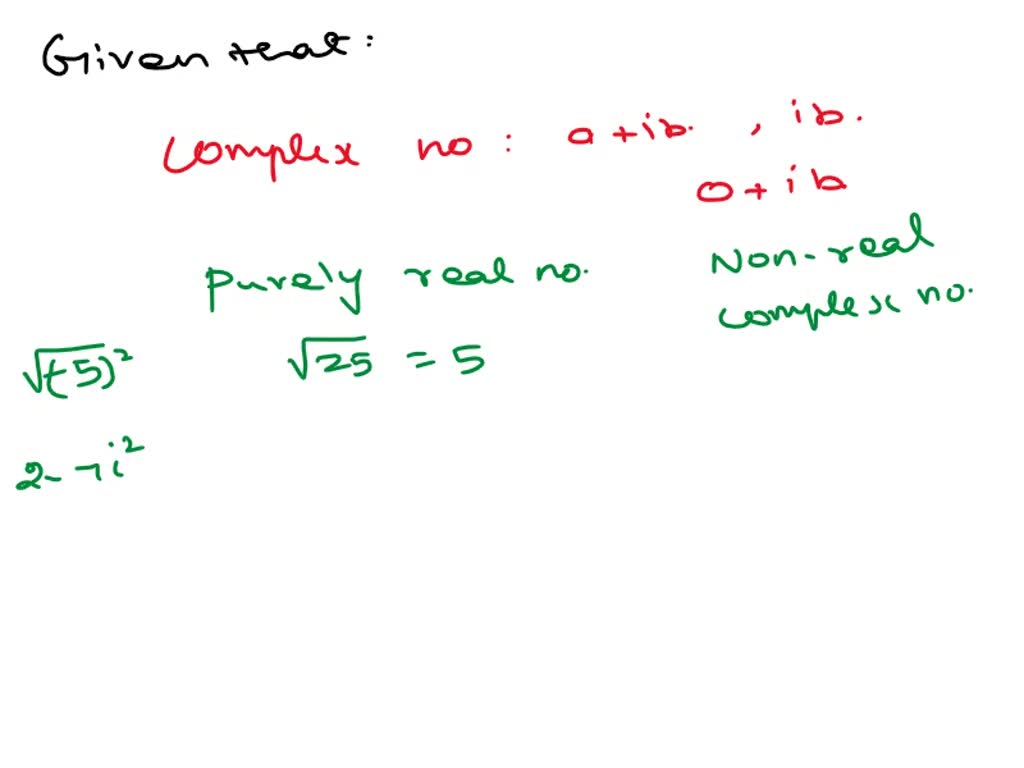 Given that:
Complex no: a+ib, ib.
0+ib
Purely real no.
Non-real
complex no.
√(-5)² √25 = 5
2-7i²